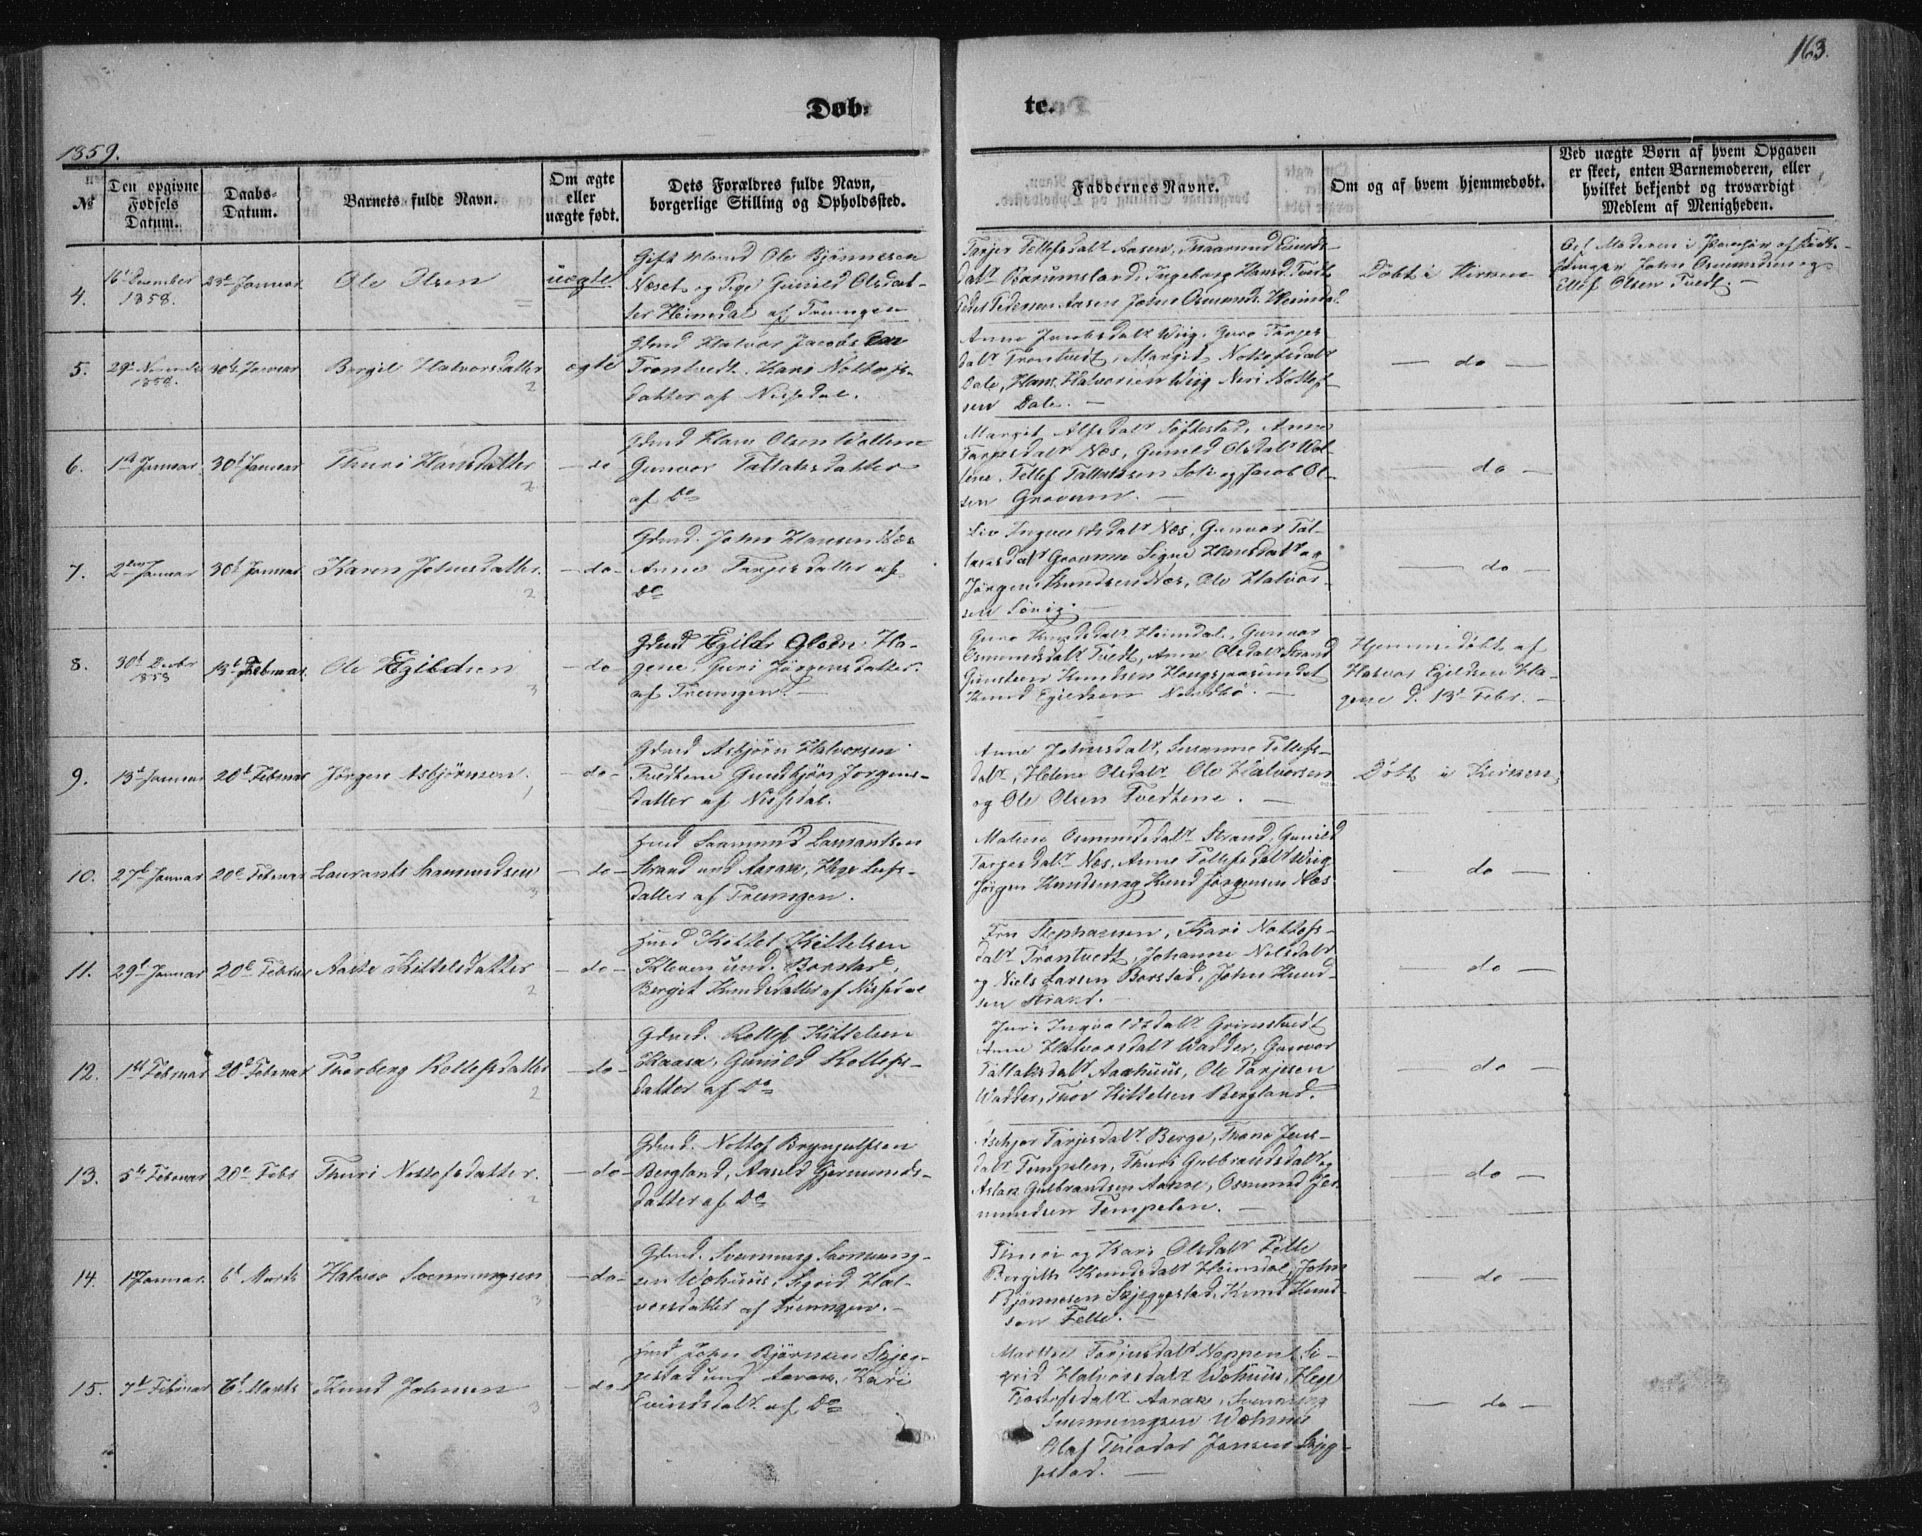 163.
Døbte.
1859.
№
Den opgivne Fødsels Datum.
Daabs-Datum.
Barnets fulde Navn.
Om ægte eller uægte født.
Dets Forældres fulde Navn, borgerlige Stilling og Opholdssted.
Faddernes Navne.
Om og af hvem hjemmedøbt.
Ved uægte Børn af hvem Opgaven er skeet, enten Barnemoderen, eller hvilket bekjendt og troværdigt Medlem af Menigheden.
4.
16 December 1858.
23d Januar
Ole Olsen
uægte
Gift Mand Ole Bjønnesen
Næset og Pige Gunild Olsdat-
ter Heimdal af Treungen
Tarjei Tellefsdatr Aasen,
datr Barumsland, Ingeborg Hansd. Tvedt
Peder Pedersen Aasen John Osmunds. Heimdal
Døbt i Kirken
Ellef Olsen Tvedt. —
5.
29d November 1858.
30d Januar
Bergit Halvorsdatter
2
ægte
Gbmd Halvor Jacobsen
Trontvedt. Kari Nottofs-
datter af Nissedal.
Anne Jacobsdatr Wiig, Guro Tarjes-
datr Trontvedt, Margit Nottofsdatr
Dale, Hans Halvorsen Wiig Neri Nottof-
sen Dale. —
— do —
6.
1st Januar
30d Januar
Thuri Hansdatter
2
— do
Gbmd Hans Olsen Wallene
Gunvor Tallaksdatter
af Do
Margit Alfsdatr Søftestad, Anne
Tarjesdatr Næs, Gunild Olsdatr Wal-
lene, Tellef Tallaksen og Jacob Ol-
sen Gravum. —
— do —
7.
2den Januar
30d Januar
Karen Johnsdatter.
2
— do —
Gbmd. John Hansen Næs
Anne Tarjesdatter af
Do
Liv Ingvaldsdatr Næs, Gunvor Tal-
laksdatr Gravum Signe Hansdatr og
Jørgen Knudsen Næs, Ole Halvor-
sen Sørvig. —
— do —
8.
30d Decbr 1858
13d Februar.
Ole Egildsen
3
— do
Gbmd Egild Olsen Ha-
gene, Guri Jørgensdatter.
af Treungen. —
Guro Knudsdatr Heimdal, Gunvor
Osmundsdatr Tvedt, Anne Olsdatr Strand
Gunsteen Knudsen Haugsjaasundet
Knud Egildsen —
Hjemmedøbt af
Halvor Egildsen Ha-
gene d. 13d Febr. —
9.
13d Januar
20d Februar
Jørgen Asbjørnsen.
1
— do —
Gbmd Asbjørn Halvorsen
Tvedtene Gundbjør Jørgens-
datter af Nissedal.
Anne Johnsdatr, Susanne Tellefs-
datr, Helene Olsdatr Ole Halvorsen
og Ole Olsen Tvedtene. —
Døbt i Kirken,
10.
27d Januar
20d Februar
Laurants Saamundsen
3
— do —
Hmd Saamund Laurantsen
Strand und Aarak, Hege Leifs-
datter af Treungen.
Malene Osmundsdatr Strand, Gunild
Tarjesdatr Næs, Anne Tellefsdatr Wiig
Jørgen Knudsen og Knud Jørgensen Næs
— do —
11.
29d Januar
20d Februar
Aaste Kittelsdatter
2
— do —
Hmd Kittel Kittelsen
Kleven und. Borstad,
Bergit Knudsdatter af Nissedal
Fru Stephansen, Kari Nottofs-
datr Trontvedt, Johanne Nilsdatr
og Niels Larsen Borstad, John Knud-
sen Strand. —
— do —
12.
1st Februar
20d Februar
Thorberg Rollefsdatter
2
— do —
Gbmd. Rollef Kittelsen
Kaasa, Gunild Rollefs-
datter af Do
Juri Ingvaldsdatr Grimstvedt
Anne Halvorsdatr Wadder, Gunvor
Tallaksdatr Aashuus, Ole Tarjesen
Wadder, Thor Kittelsen Bergland.
— do —
13.
5te Februar
20d Febr
Thuri Nottofsdatter.
2
— do —
Gbmd. Nottof Bryngulfsen
Bergland, Aasild Gjermunds-
datter af Do
Aschjer Tarjesdatr Berge, Thone Jens-
datr Tempelen, Thuri Gulbrandsdatr og
Aslak Gulbrandsen Aasne, Osmund Jer-
mundsen Tempelen. —
— do —
14.
1st Januar.
6d Marts
Halvor Svenningsen
3
— do —
Gbmd. Svennung Svennung-
sen Wæhuus, Sigrid Hal-
vorsdatter af Treungen. —
og Kari Olsdatr Felle
Bergith Knudsdatr Heimdal, John
Bjønnesen Skjeggestad, Knud Knud-
sen Felle. —
— do —
15.
7d Februar
6d Marts
Knud Johnsen
3
— do
Hmd John Bjørnsen Skjeg-
gestad und Aarak, Kari
Evindsdatr. af Do
Marthe Tarjusdatr Noppen, Si-
grid Halvorsdatr Wæhuus, Hege
Aarak, Svennung
Svennungsen Wæhuus
Olaf Theodor Jansen Skjeg-
gestad. —
— do —